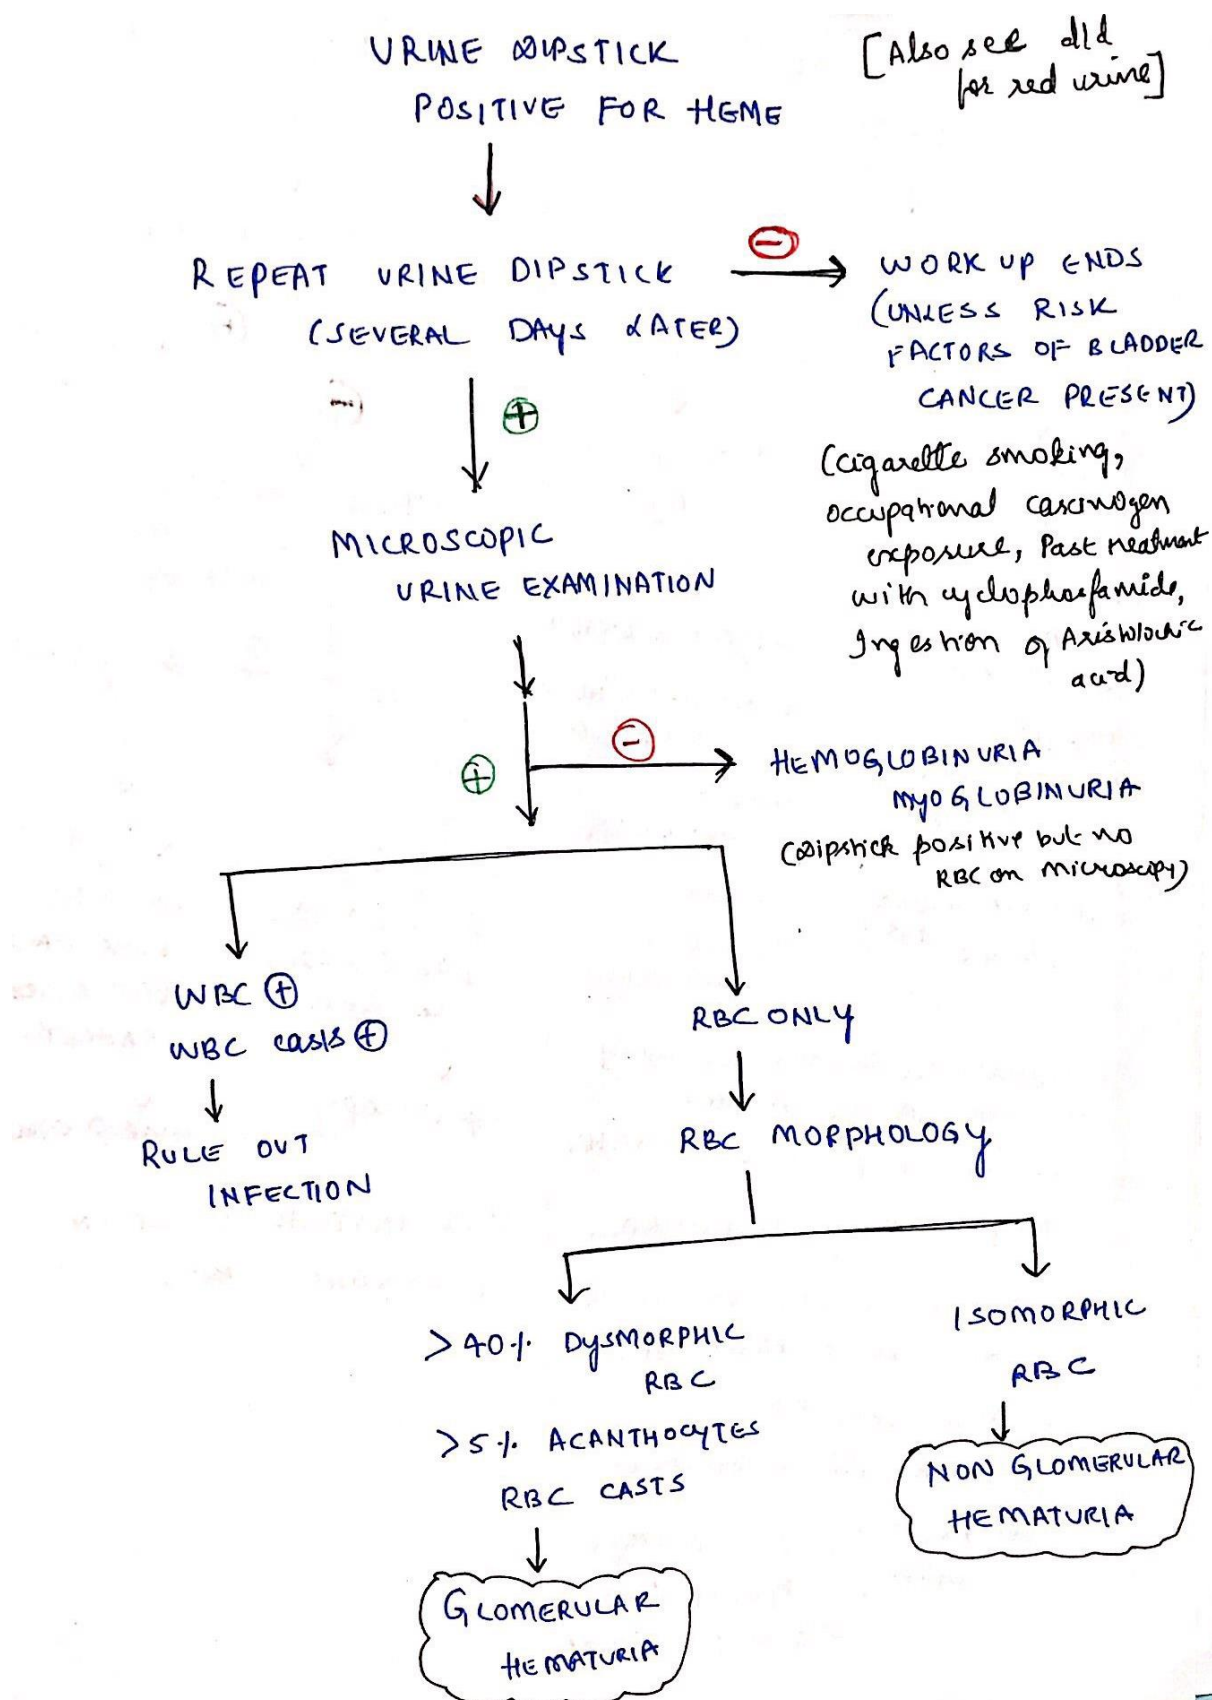 URINE DIPSTICK
POSITIVE FOR HEME
[Also see d/d
for red urine]
REPEAT URINE DIPSTICK
(SEVERAL DAYS LATER)
-
WORK UP ENDS
(UNLESS RISK
FACTORS OF BLADDER
CANCER PRESENT)
(cigarette smoking,
occupational carcinogen
exposure, Past treatment
with cyclophosfamide,
Ingestion of Aristolochic
acid)
+
MICROSCOPIC
URINE EXAMINATION
-
+
HEMOGLOBINURIA
MYOGLOBINURIA
(Dipstick positive but no
RBC on microscopy)
WBC +
WBC casts +
RULE OUT
INFECTION
RBC ONLY
RBC MORPHOLOGY
>40% DYSMORPHIC
RBC
>5% ACANTHOCYTES
RBC CASTS
GLOMERULAR
HEMATURIA
ISOMORPHIC
RBC
NON GLOMERULAR
HEMATURIA